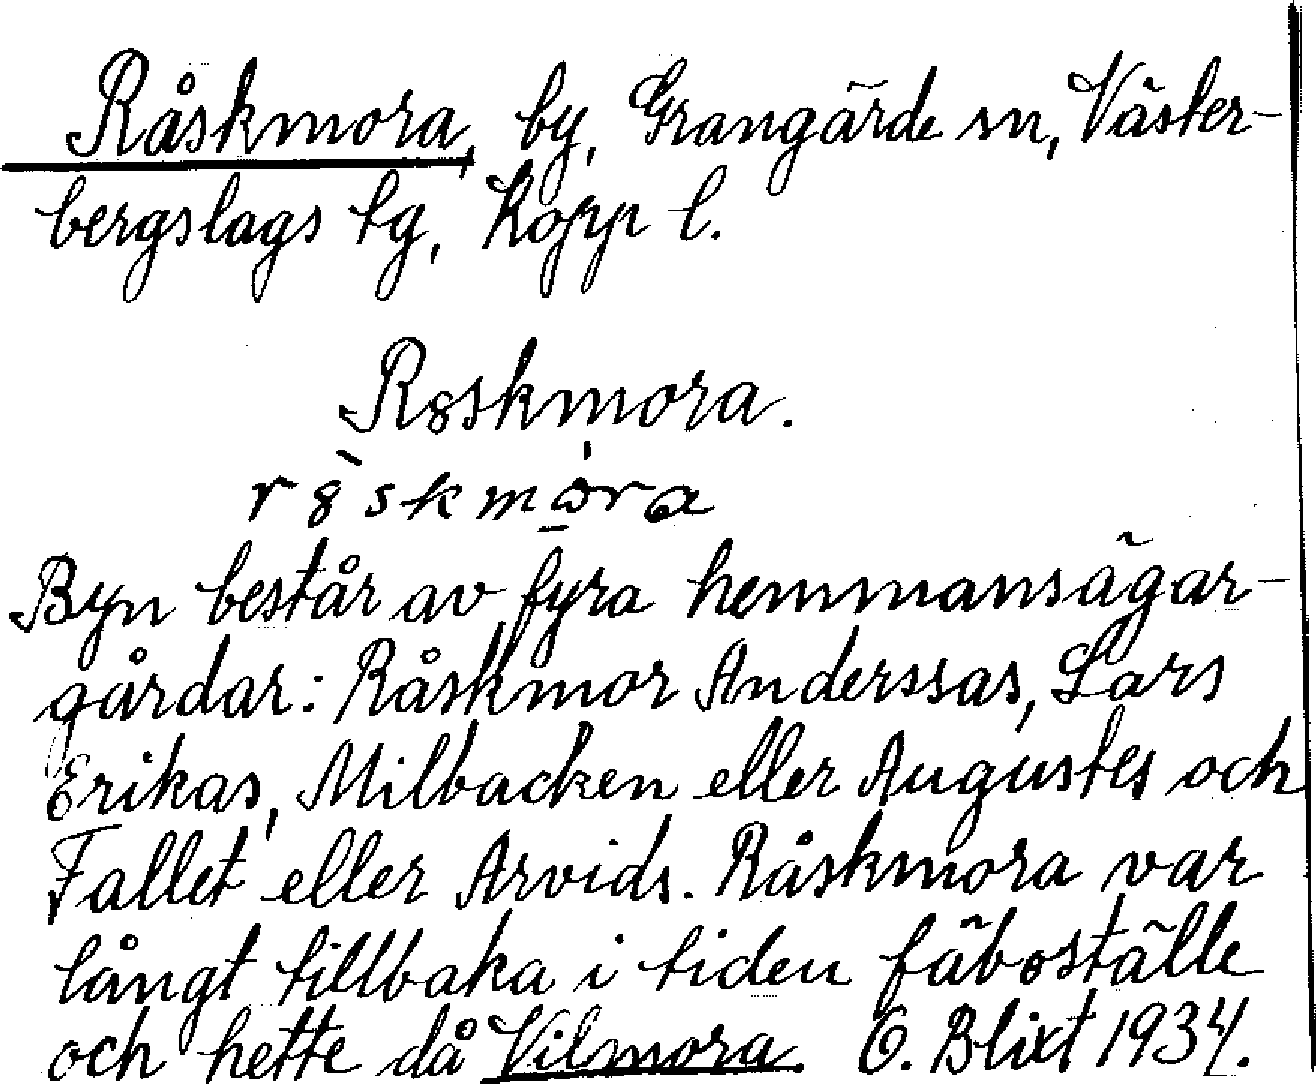 Råskmora, by, Grangärde sn, Väster-
bergslags tg, Kopp l.
R8skmora.
r8̀skmò̱ra
Byn består av fyra hemmansägar-
gårdar: Råskmor Anderssas, Lars
Erikas, Milbacken eller Augustes och
Fallet eller Arvids. Råskmora var
långt tillbaka i tiden fäboställe
och hette då Vilmora. O. Blixt 1934.